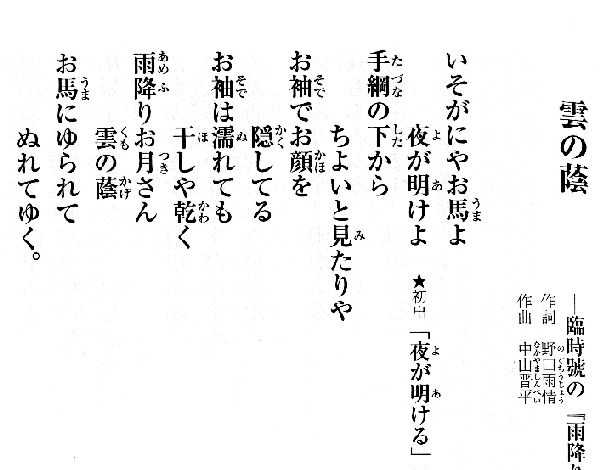 雲の蔭
―臨時號の『雨降り
作詞 野口雨情
作曲 中山晋平
いそがにやお馬よ
夜が明けよ
★初出「夜が明ける」
手綱の下から
ちよいと見たりや
お袖でお顔を
隠してる
お袖は濡れても
干しや乾く
雨降りお月さん
雲の蔭
お馬にゆられて
ぬれてゆく。